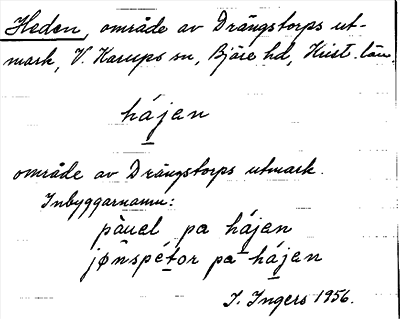 Heden, område av Drängstorps ut-
mark, V. Karups sn, Bjäre hd, Krist. län.
hájen
område av Drängstorps utmark.
Inbyggarnamn:
pàuel pa hájen
jønspétor pa hájen
I. Ingers 1956.